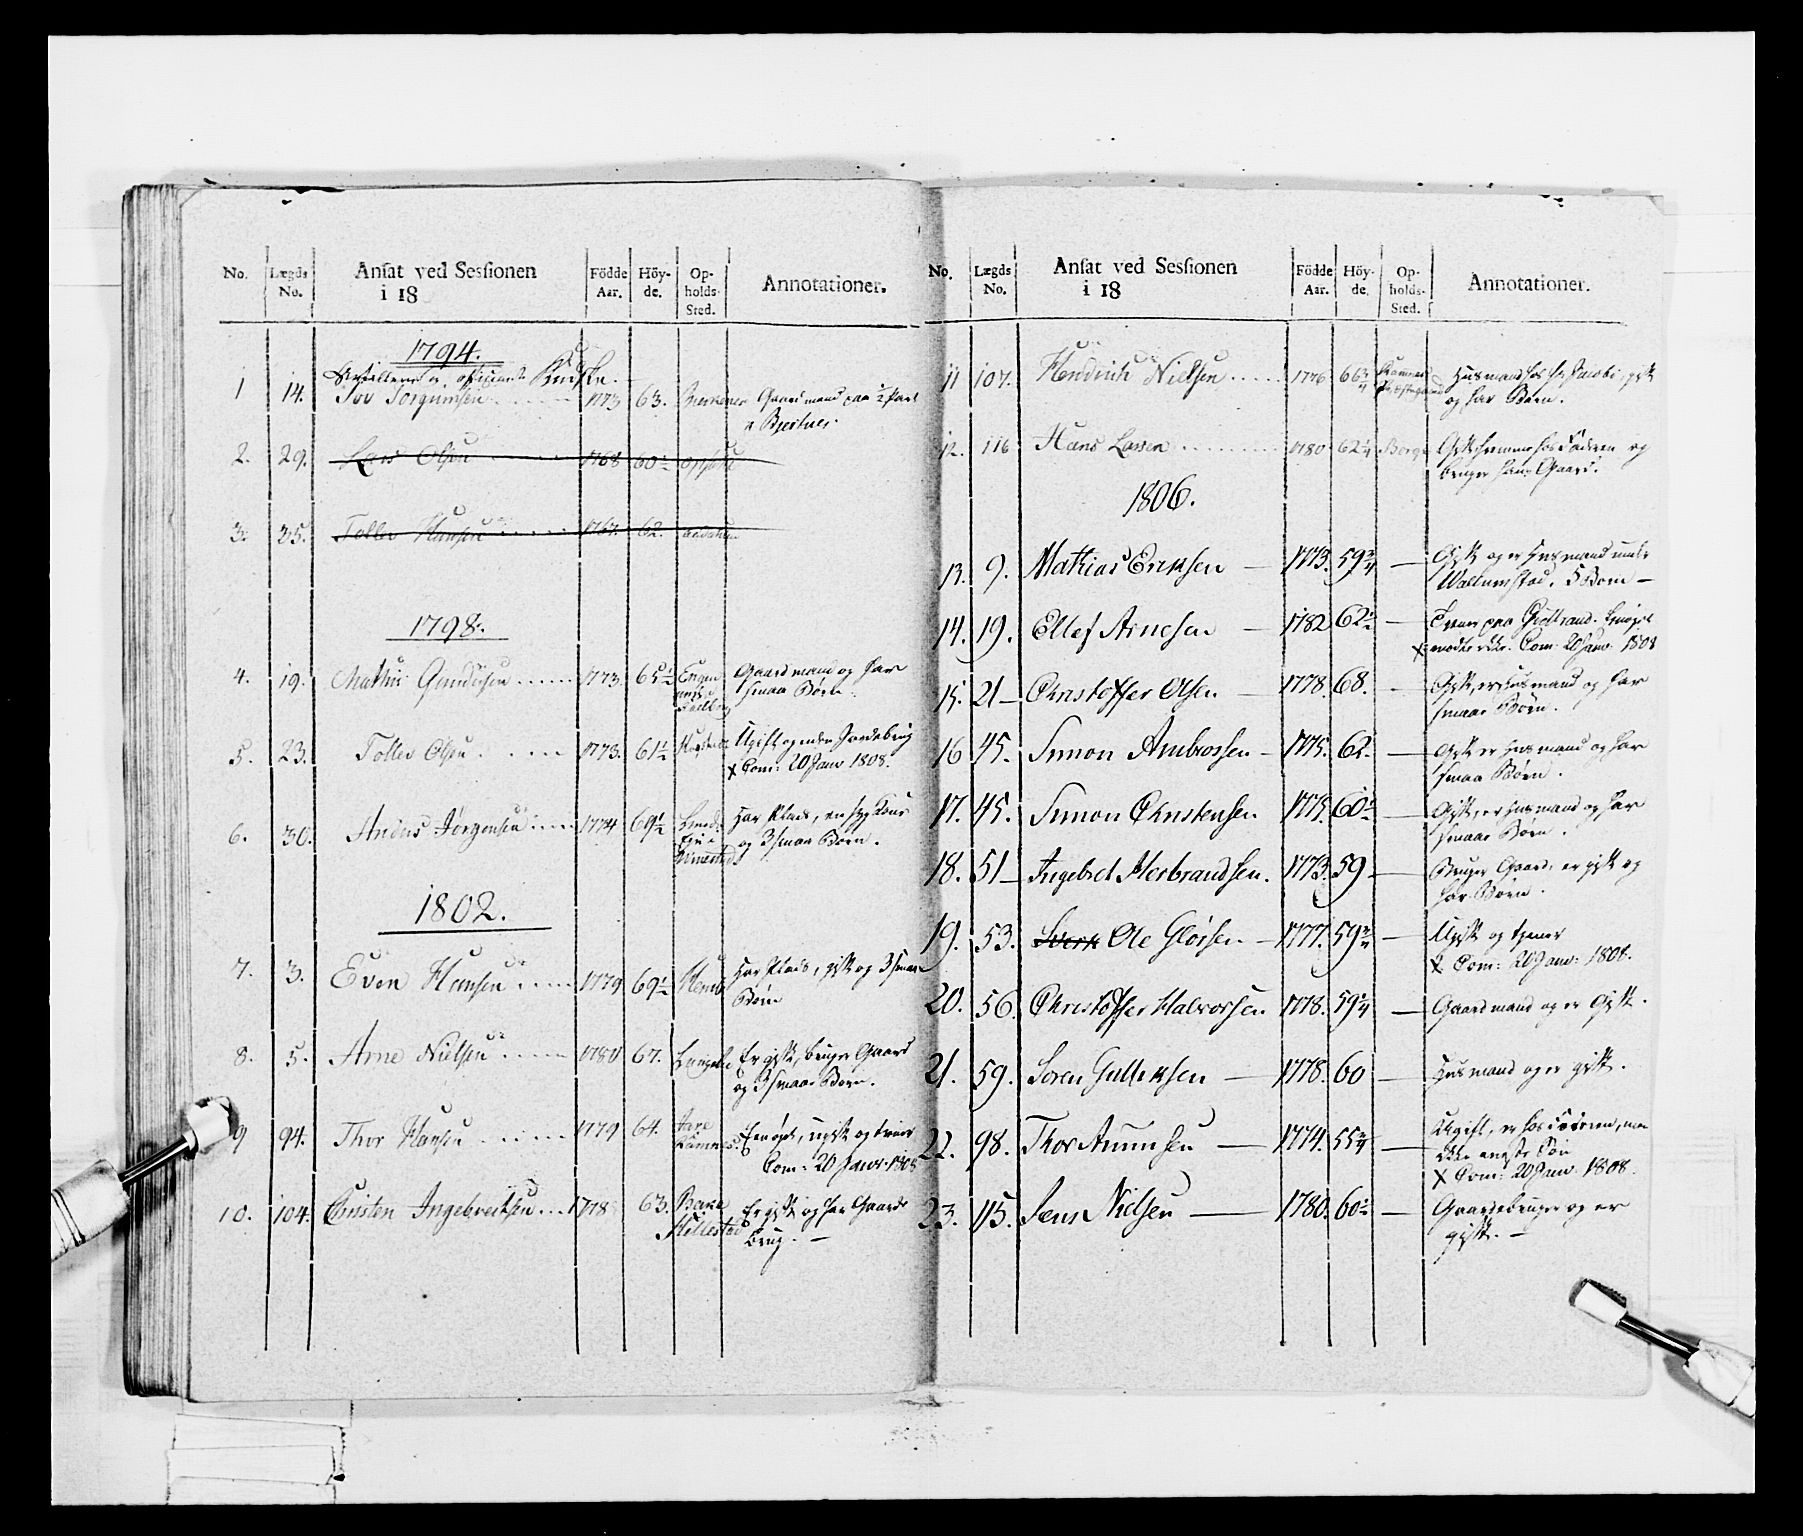 No. Lægds No. Ansat ved Sessionen i 18 Födde Aar. Höyde. Opholds-Sted. Annotationer.
1794.
Kudske.
1 14. Tov Torgumsen 1773 63. Gaardmand paa ½ Part
2. 29. Lars Olsen 1768 60½
3. 25. Toller Hansen 1767. 62.
1798.
4. 19. Mathis Gundersen 1773. 65½ Gaardmand og har
smaa Børn.
5. 23. Toller Olsen 1773. 61½ Ugift og uden Jordebrug
X Com: 20 Janv 1808.
6. 30. Anders Jörgensen 1774 69½ Har Plads, en syg Kone
og 3 smaa Börn.
1802.
7. 3. Even Hansen 1779 69½ Har Plads, gift og 3 smaa
Börn
8. 5. Arne Nielsen 1780 67. Er gift, bruger Gaard
og 3 smaa Börn.
9 94. Thor Hansen 1779 64. ugift og tiener
Com: 20 Janv. 1808
10. 104. Cristen Ingebretsen 1778 63. Er gift og har Gaards
Brug. —
No. Lægds No. Ansat ved Sessionen i 18 Födde Aar. Höyde. Opholds-Sted. Annotationer.
11 107. Hendrich Nielsen 1776 66¾ Husmand hos Hr Jacobi, gift
og har Børn.
12. 116 Hans Larsen 1780 62¼ Berge Gift hiemme hos Faderen og
bruger hans Gaard.
1806.
13. 9. Mathias Eriksen — 1773. 59¾ — Gift og er Husmand under
5 Børn —
14. 19. Ellef Arnesen — 1782 62½ —
Com: 20 Janv. 1808
15. 21 — Christoffer Olsen — 1778. 68. — Gift, er Husmand og har
smaae Börn.
16 45. Simon Ambrossen — 1775. 62. — Gift er Husmand og har
smaa Börn.
17. 45. Simon Christensen. 1775. 60½ — Gift, er Husmand og har
smaae Börn.
18. 51 — Ingebret Herbrandsen. 1773. 59 — Bruger Gaard, er gift og
har Börn.
19. 53. Ole Gloisen — 1777. 59¾ — Ugift og tjener
X Com: 20 Janv: 1808.
20. 56. Christoffer Halvorsen 1778. 59¼ — Gaardmand og er Gift.
21. 59. Soren Gulliksen — 1778. 60 — Husmand og er gift.
22. 98. Thor Amunsen — 1774. 55¾ — Ugift, er hos
ikke eneste Søn
X Com: 20 Janv. 1808.
23. 115. Jens Nielsen — 1780. 60½ — Gaardebruger og er
gift. —